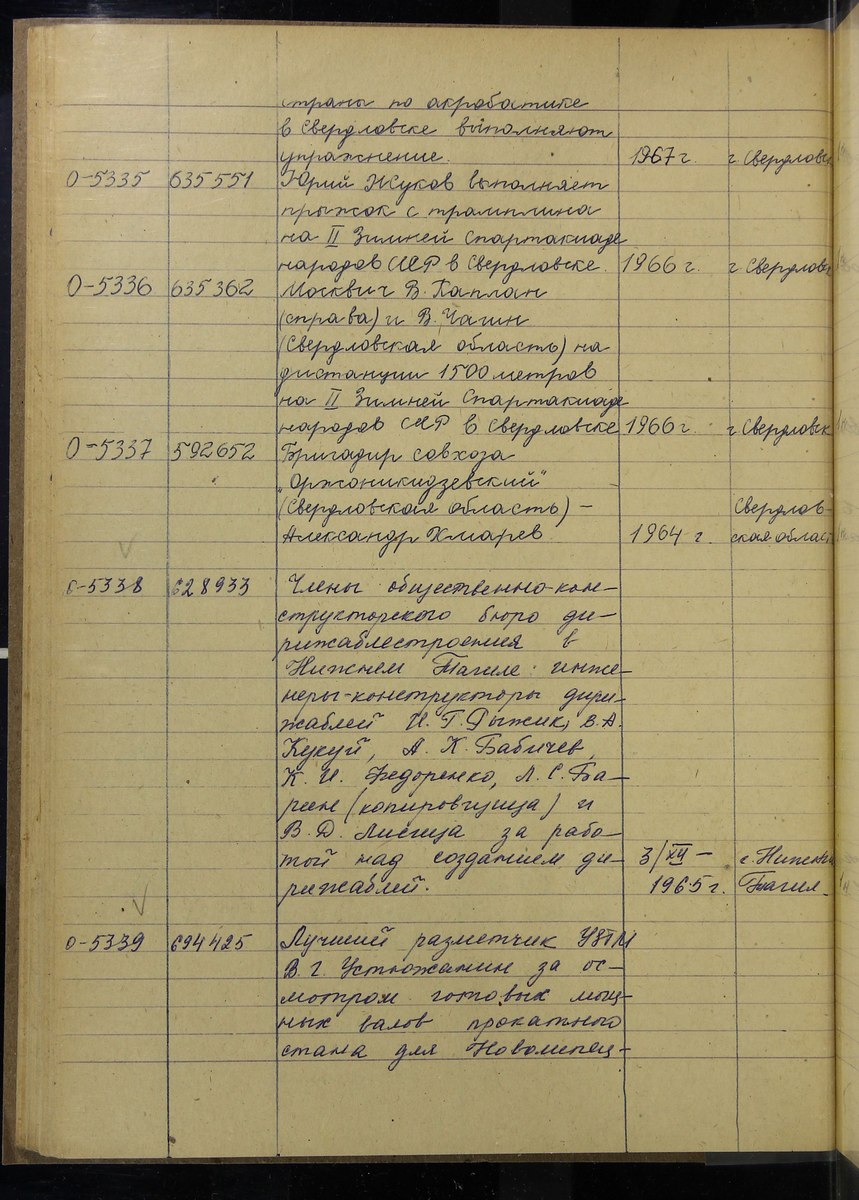 страны по акробатике
в Свердловске выполняют
упражнение. 1967 г. г Свердловск
О-5335 635551 Юрий Жуков выполняет
прыжок с трамплина
на II Зимней Спартакиаде
народов СССР в Свердловске. 1966 г. г. Свердловск
О-5336 635362 Москвич В. Каплан
(справа) и В. Чагин
(Свердловская область) на
дистанции 1500 метров
на II Зимней Спартакиаде
народов СССР в Свердловске 1966 г. г. Свердловск
О-5337 592652 Бригадир совхоза
"Орджоникидзевский"
(Свердловская область) – Свердлов-
Александр Хмарев. 1964 г. ская област
0-5338 628933 Члены общественно-кон-
структорского бюро ди-
рижаблестроения в
Нижнем Тагиле: инже-
неры-конструкторы дири-
жаблей И. Г. Рыжик, В. А.
Кукуй, А. К. Бабичев,
К. И. Федоренко, Л. С. Ба-
(копировщица) и
В. Д. Лисица за рабо-
той над созданием ди- 3/XII – г. Нижний
рижаблей. 1965 г. Тагил.
0-5339 694425 Лучший разметчик УЗТМ
В. Г. Устюжанин за ос-
мотром готовых мощ-
ных валов прокатного
стана для Новолипец-